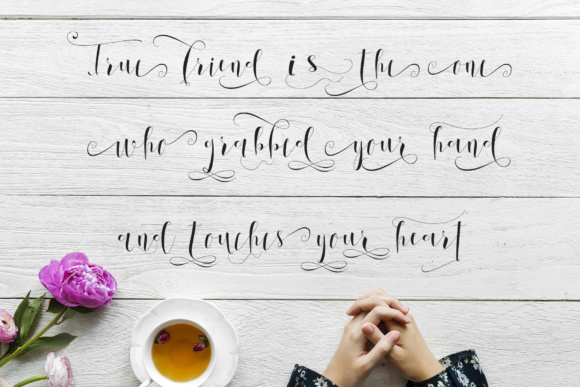 True friend is the one
who grabbed your hand
and touches your heart